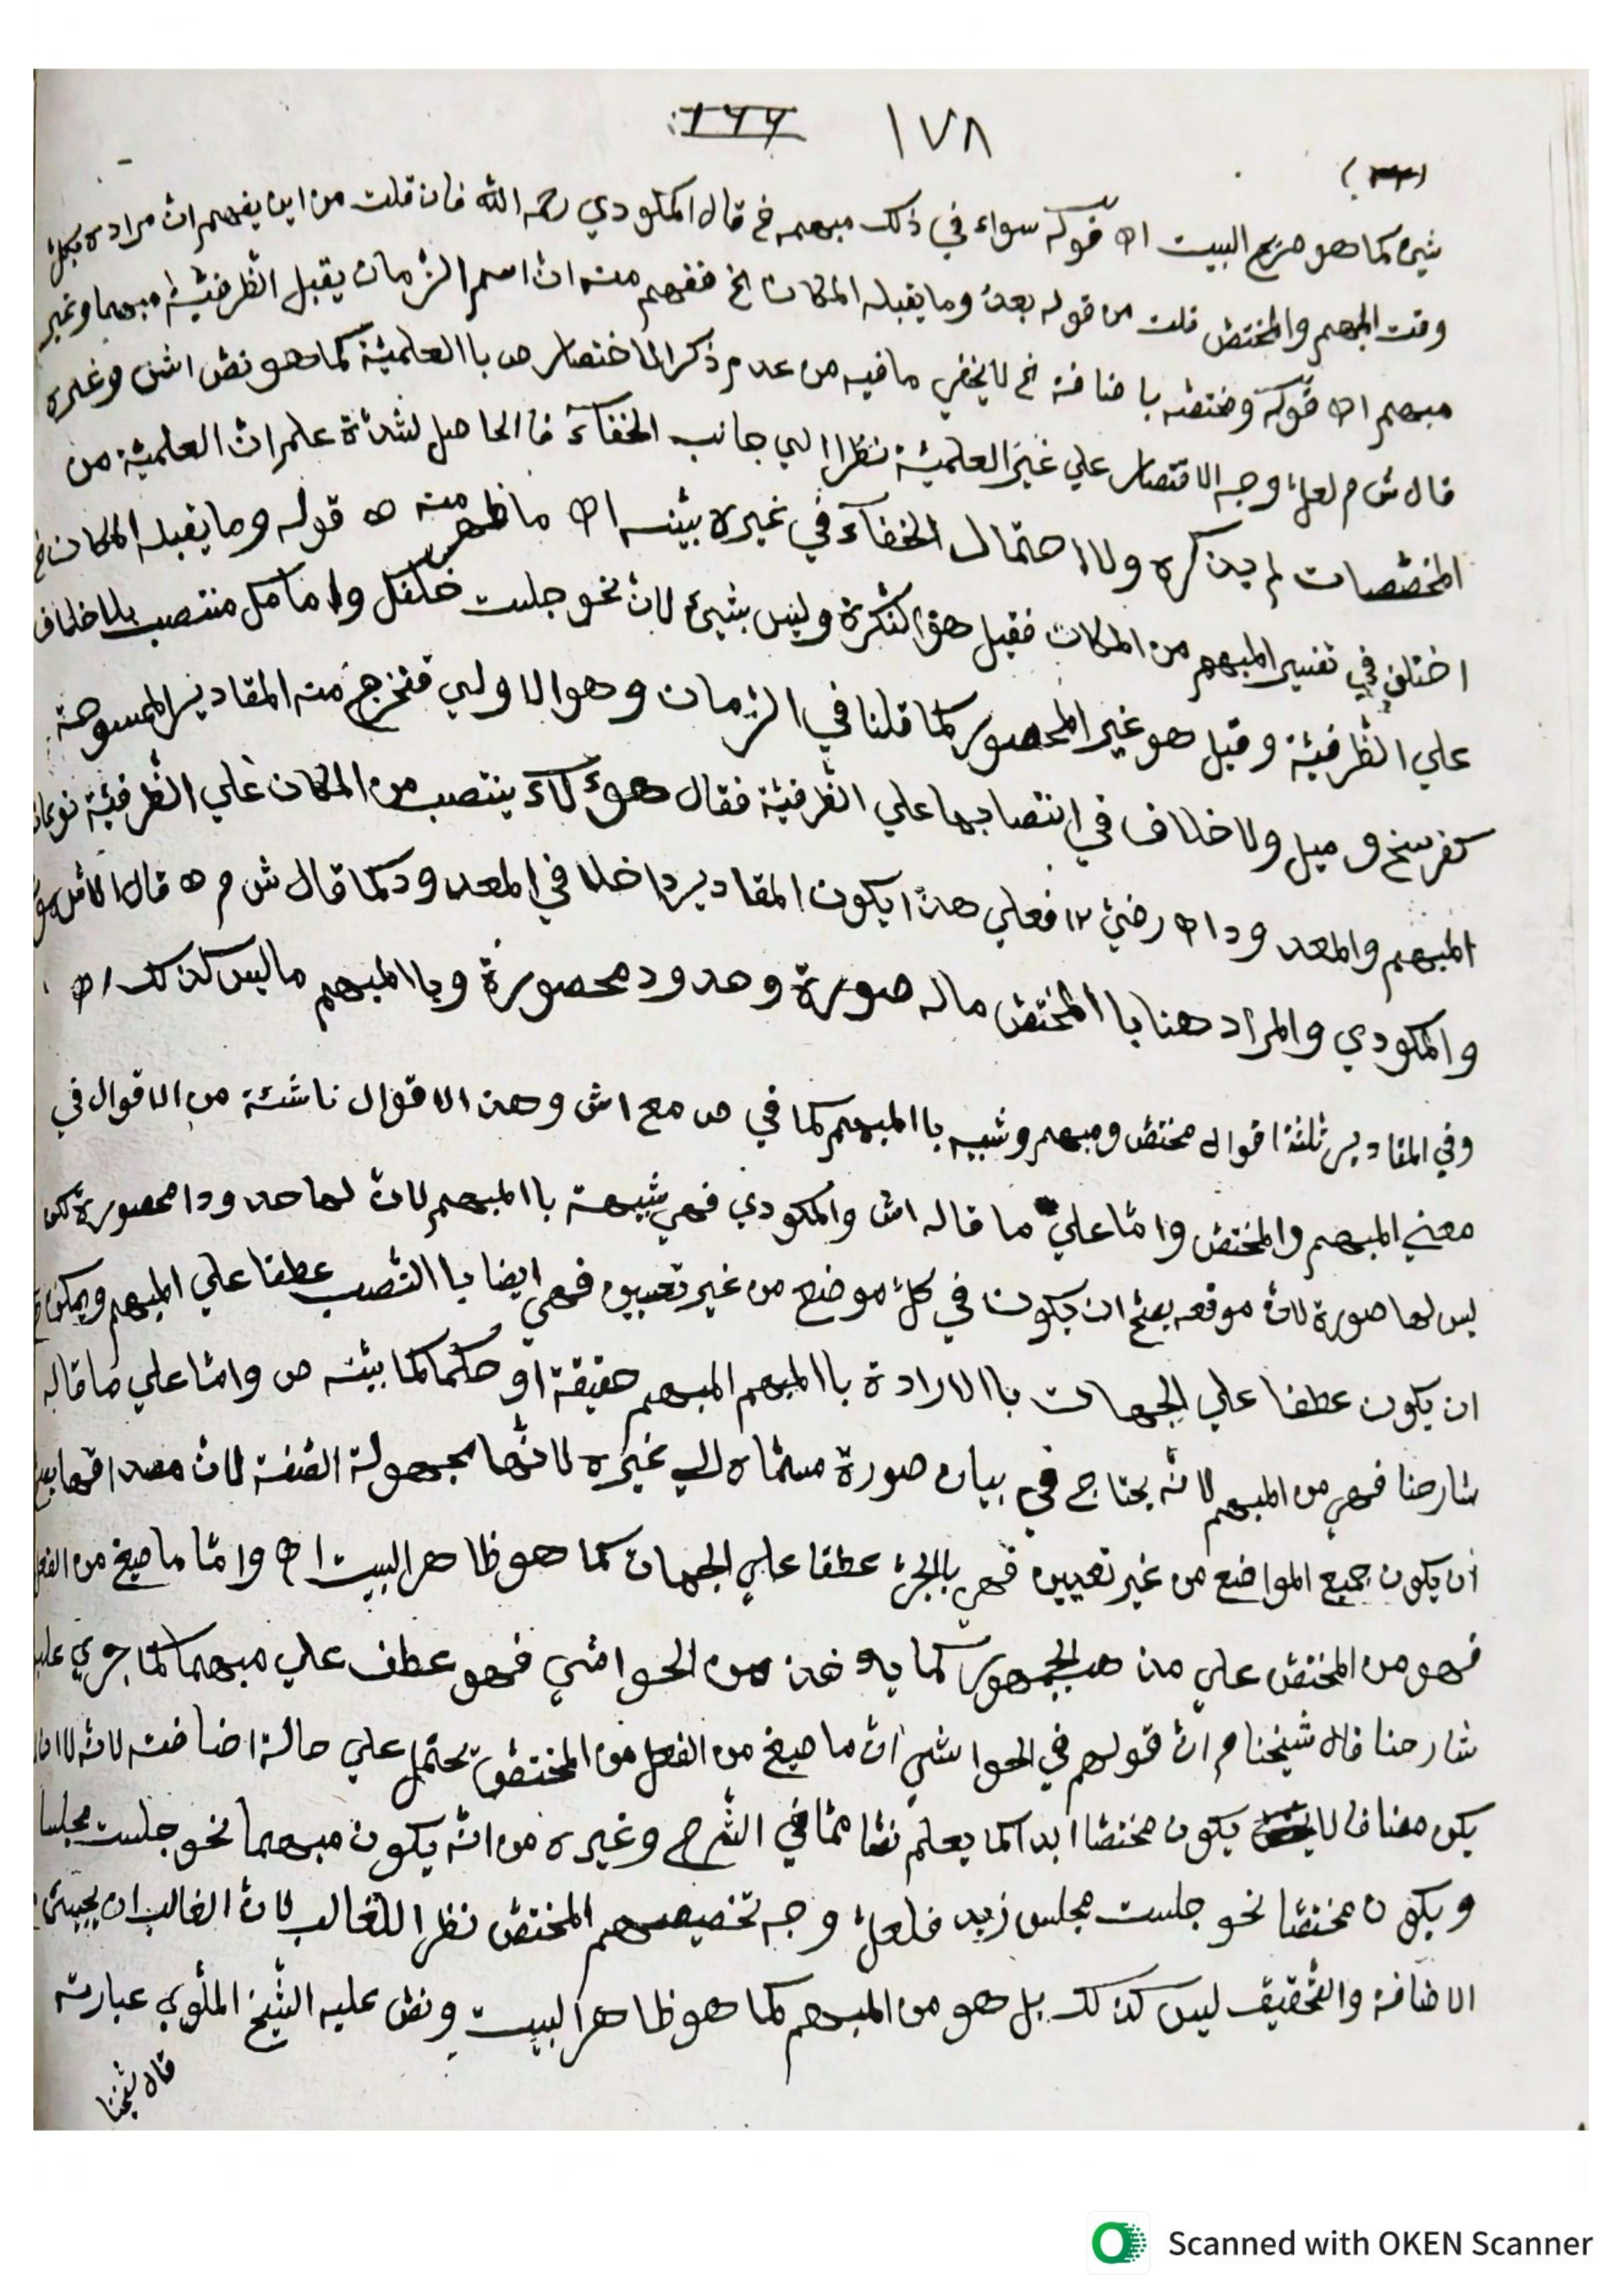 ١٧٨ ١٦٦
شيئ كما هو صريح البيت اه قوله سواء في ذلك مبهمه خ قال المكودي رحمه الله فان قلت من اين يفهم ان مراده بكل
وقت المبهم والمختص قلت من قوله بعد وما يقبله المكان الخ ففهم منه ان اسم الزمان يقبل الظرفية مبهما وغير
مبهم اه قوله ومختصه باضافة الخ لا يخفي ما فيه من عدم ذكر الاختصار ص باالعلمية كما هو نص اش وغيره
قال ش م لعل وجه الاقتصار علي غير العلمية نظرا الي جانب الخفآء فاالحاصل لشدة علم ان العلمية من
المخصصات لم يذكره ولا احتمال الخفآء في غيره بينه اه ما ظهر منه ه قوله وما يقبله المكان خ
اختلف في تفسير المبهم من المكان فقيل هو النكرة وليس بشيئ لان نحو جلست خلفك وامامك منتصب بلا خلاف
علي الظرفية وقيل هو غير المحصور كما قلنا في الزمان وهو الاولي فتخرج منه المقادير الممسوحة
كفرسخ وميل ولا خلاف في انتصابها علي الظرفية فقال هؤلآء ينتصب من المكان علي الظرفية نوعان
المبهم والمعدود اه رضي ١٢ فعلي هذا يكون المقادير داخلا في المعدود كما قال ش م ه قال الاشموني
والمكودي والمراد هنا باالمختص ما له صورة وحدود محصورة وباالمبهم ما ليس كذلك اه
وفي المقادير ثلثة اقوال مختص ومبهم وشبيه باالمبهم كما في ص مع اش وهذه الاقوال ناشئة من الاقوال في
معني المبهم والمختص واما علي ما قاله اش والمكودي فهي شبيهة باالمبهم لان لها حدودا محصورة لكن
ليس لها صورة لان موقعه يصح ان يكون في كل موضع من غير تعيين فهي ايضا باالنصب عطفا علي المبهم ويمكن
ان يكون عطفا علي الجهات باالارادة باالمبهم المبهم حقيقة او حكما كما بينه ص واما علي ما قاله
شارحنا فهي من المبهم لانه يحتاج في بيان صورة مسماه الي غيره لانها مجهولة الصفة لان مصداقها يصح
ان يكون جميع المواضع من غير تعيين فهي بالجر عطفا علي الجهات كما هو ظاهر البيت اه واما ما صيغ من الفعل
فهو من المختص علي مذهب الجمهور كما يؤخذ من الحواشي فهو عطف علي مبهما كما جري عليه
شارحنا قال شيخنا م ان قولهم في الحواشي ان ما صيغ من الفعل من المختص يحتمل علي حالة اضافته لانه لا ان
يكن مضافا لا يكون مختصا ابدا كما يعلم نصا مما في الشرح وغيره من انه يكون مبهما نحو جلست مجلسا
ويكون مختصا نحو جلست مجلس زيد فلعل وجه تخصيصهم المختص نظرا للغالب لان الغالب ان يجيئ
الاضافة والتحقيق ليس كذلك بل هو من المبهم كما هو ظاهر البيت ونص عليه الشيخ الملوي عبارته
قال شيخنا
Scanned with OKEN Scanner